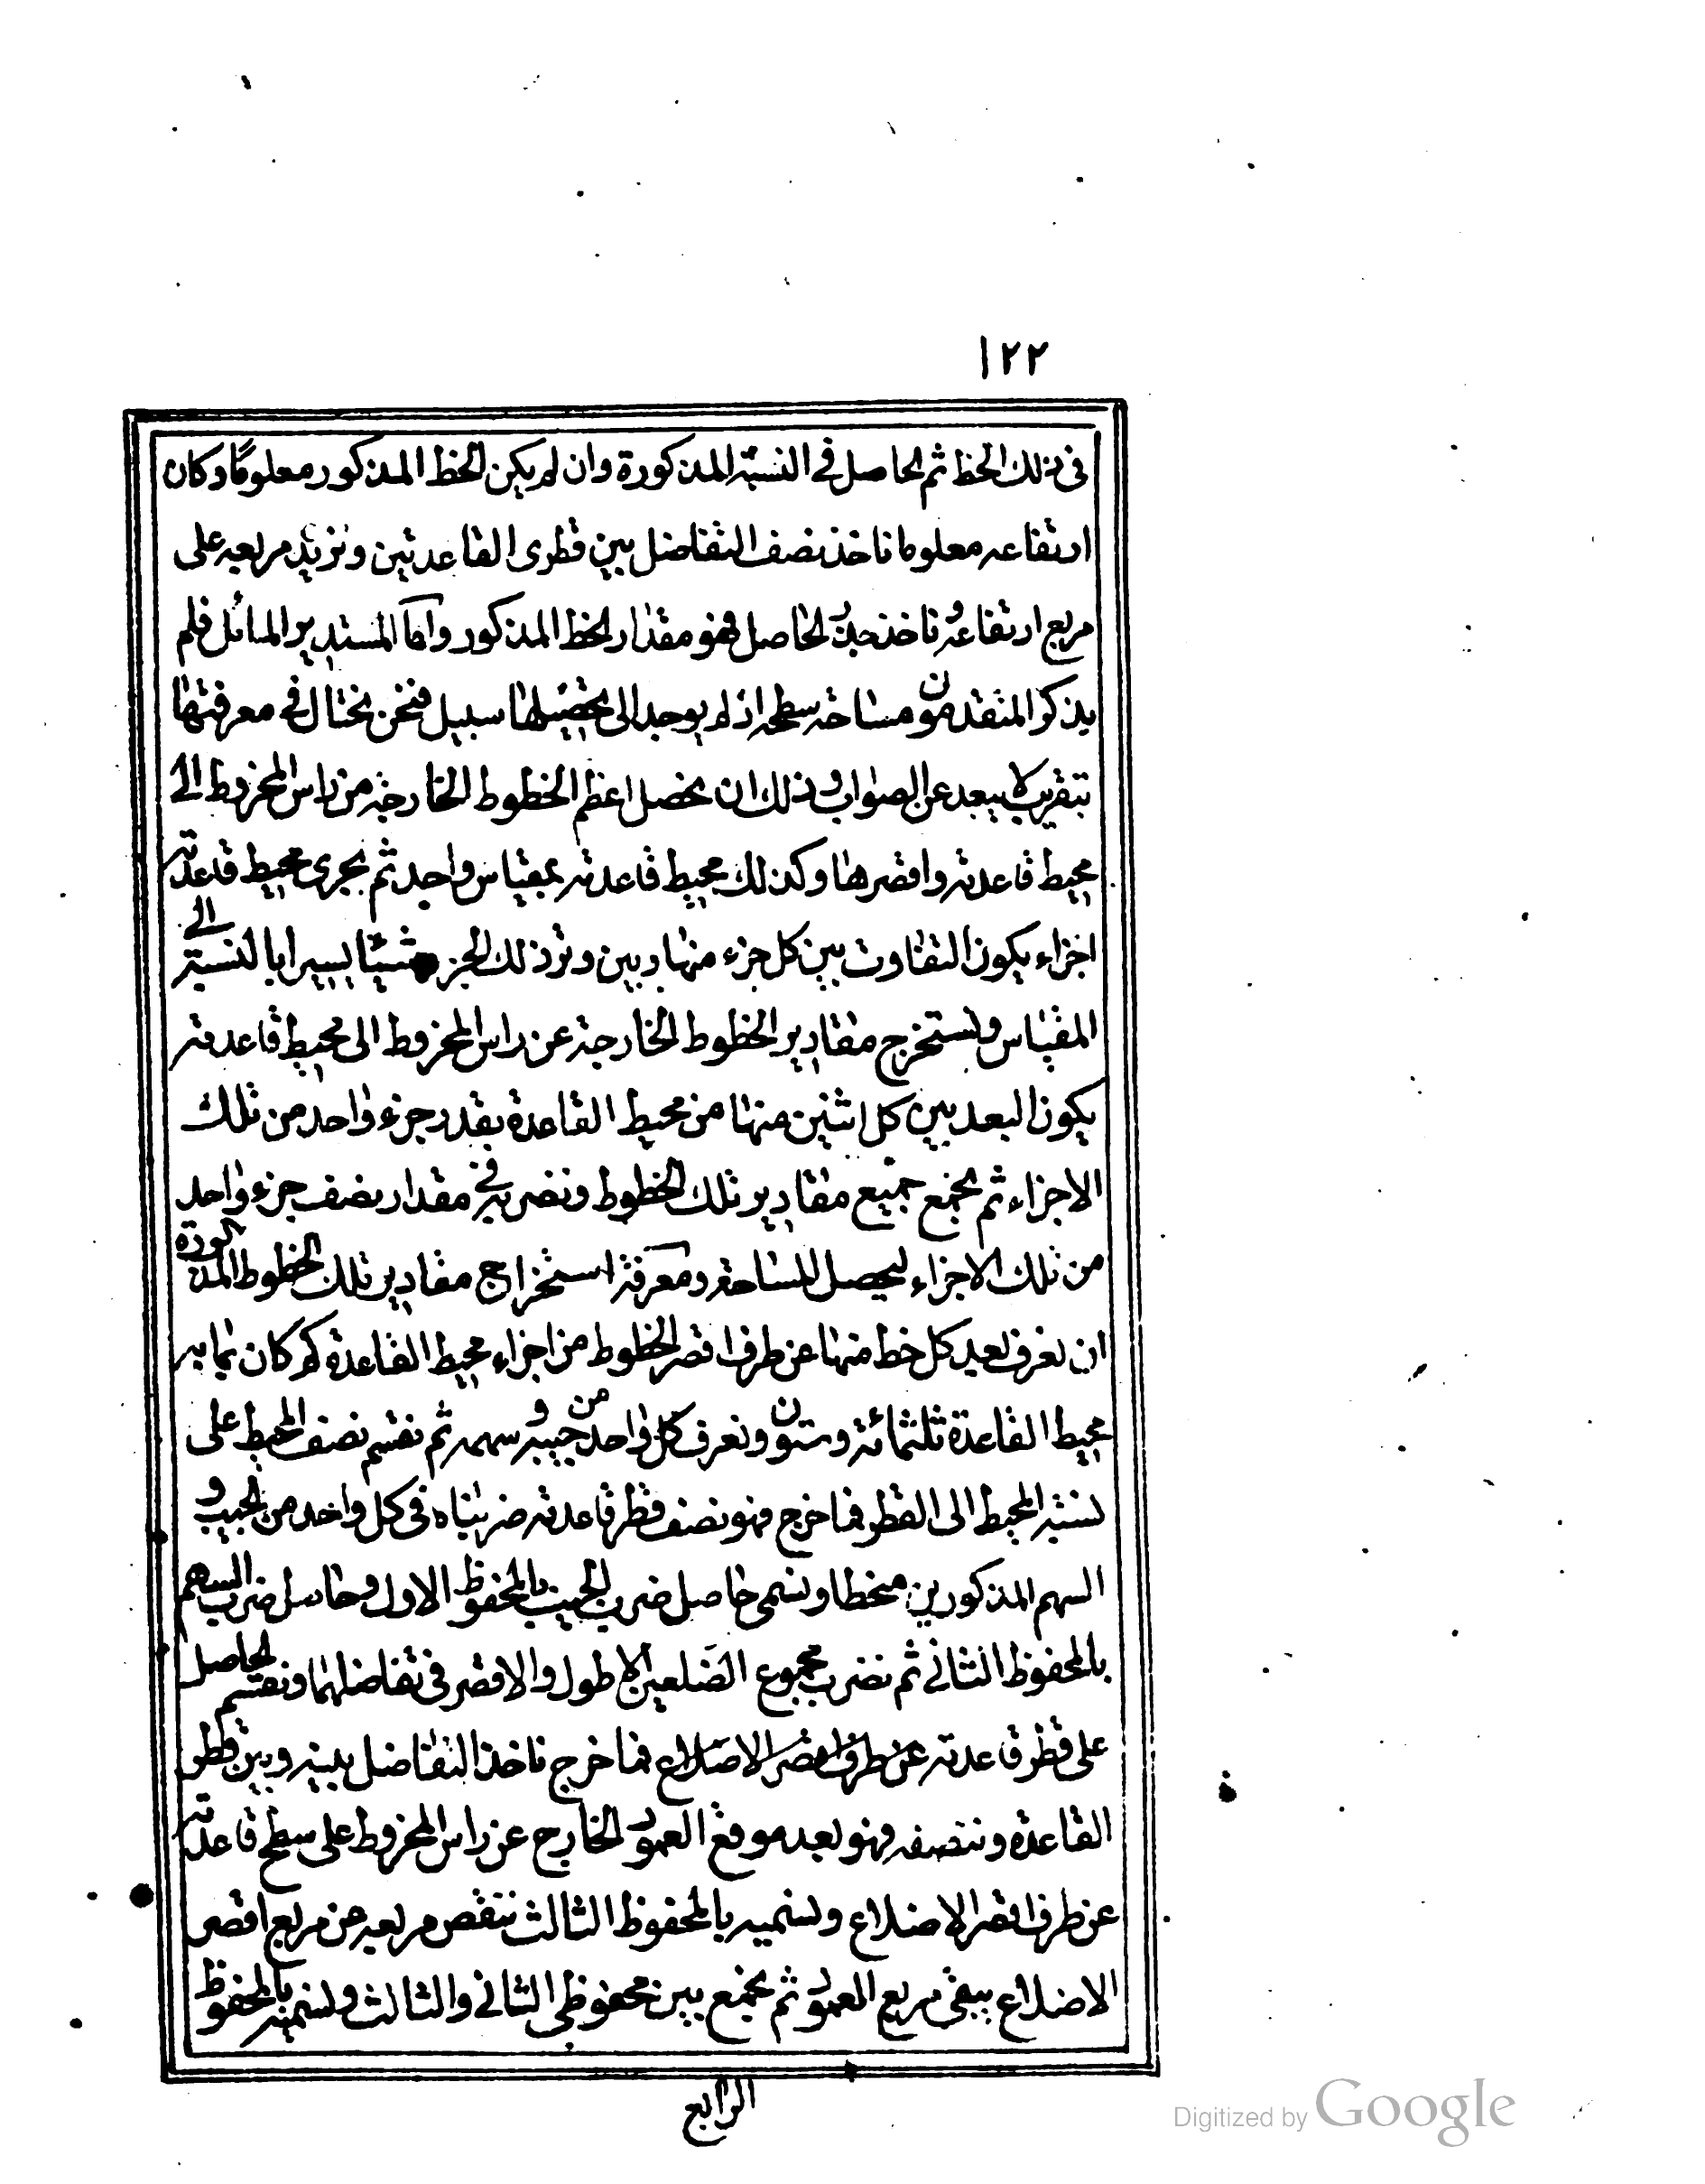 ١٢٢
فى ذلك الخط ثم الحاصل فى النسبة المذكورة وان لم يكن الخط المذكور معلوما وكان
ارتفاعه معلوما ناخذ نصف التفاضل بين قطرى القاعدتين ونزيد مربعه على
مربع ارتفاعه وناخذ جذر الحاصل فهو مقدار الخط المذكور واما المستدير المائل فلم
يذكر المتقدمون مساحة سطحه اذ لم يوجد الى تحصيلها سبيل فنحن نحتال فى معرفتها
بتقريب لا يبعد عن الصواب وذلك ان نحصل اعظم الخطوط الخارجة من راس المخروط الى
محيط قاعدته واقصرها وكذلك محيط قاعدته بمقياس واحد ثم نجزى محيط قاعدته
اجزاء يكون التفاوت بين كل جزء منها وبين وتر ذلك الجزء شيئا يسيرا بالنسبة الى
المقياس ونستخرج مقادير الخطوط الخارجة عن راس المخروط الى محيط قاعدته
يكون البعد بين كل اثنين منها من محيط القاعدة بقدر جزء واحد من تلك
الاجزاء ثم نجمع جميع مقادير تلك الخطوط ونضربه فى مقدار نصف جزء واحد
من تلك الاجزاء ليحصل المساحة ومعرفة استخراج مقادير تلك الخطوط المذكورة
ان نعرف بعد كل خط منها عن طرف اقصر الخطوط من اجزاء محيط القاعدة كم كان بما به
محيط القاعدة ثلثمائة وستون ونعرف كل واحد من جيبه و سهمه ثم نقسم نصف المحيط على
نسبة المحيط الى القطر فما خرج فهو نصف قطر قاعدته ضربناه فى كل واحد من الجيب و
السهم المذكورين منحطا ونسمى حاصل ضرب الجيب بالمحفوظ الاول وحاصل ضرب السهم
بالمحفوظ الثانى ثم نضرب مجموع الضلعين الاطول والاقصر فى تفاضلهما ونقسم الحاصل
على قطر قاعدته عن طرف اقصر الاضلاع فما خرج ناخذ التفاضل بينه وبين قطر
القاعدة وننصفه فهو بعد موقع العمود الخارج عن راس المخروط على سطح قاعدته
عن طرف اقصر الاضلاع ونسميه بالمحفوظ الثالث ننقص مربعه من مربع اقصر
الاضلاع يبقى مربع العمود ثم نجمع بين محفوظى الثانى والثالث ونسميه بالمحفوظ
الرابع
Digitized by Google